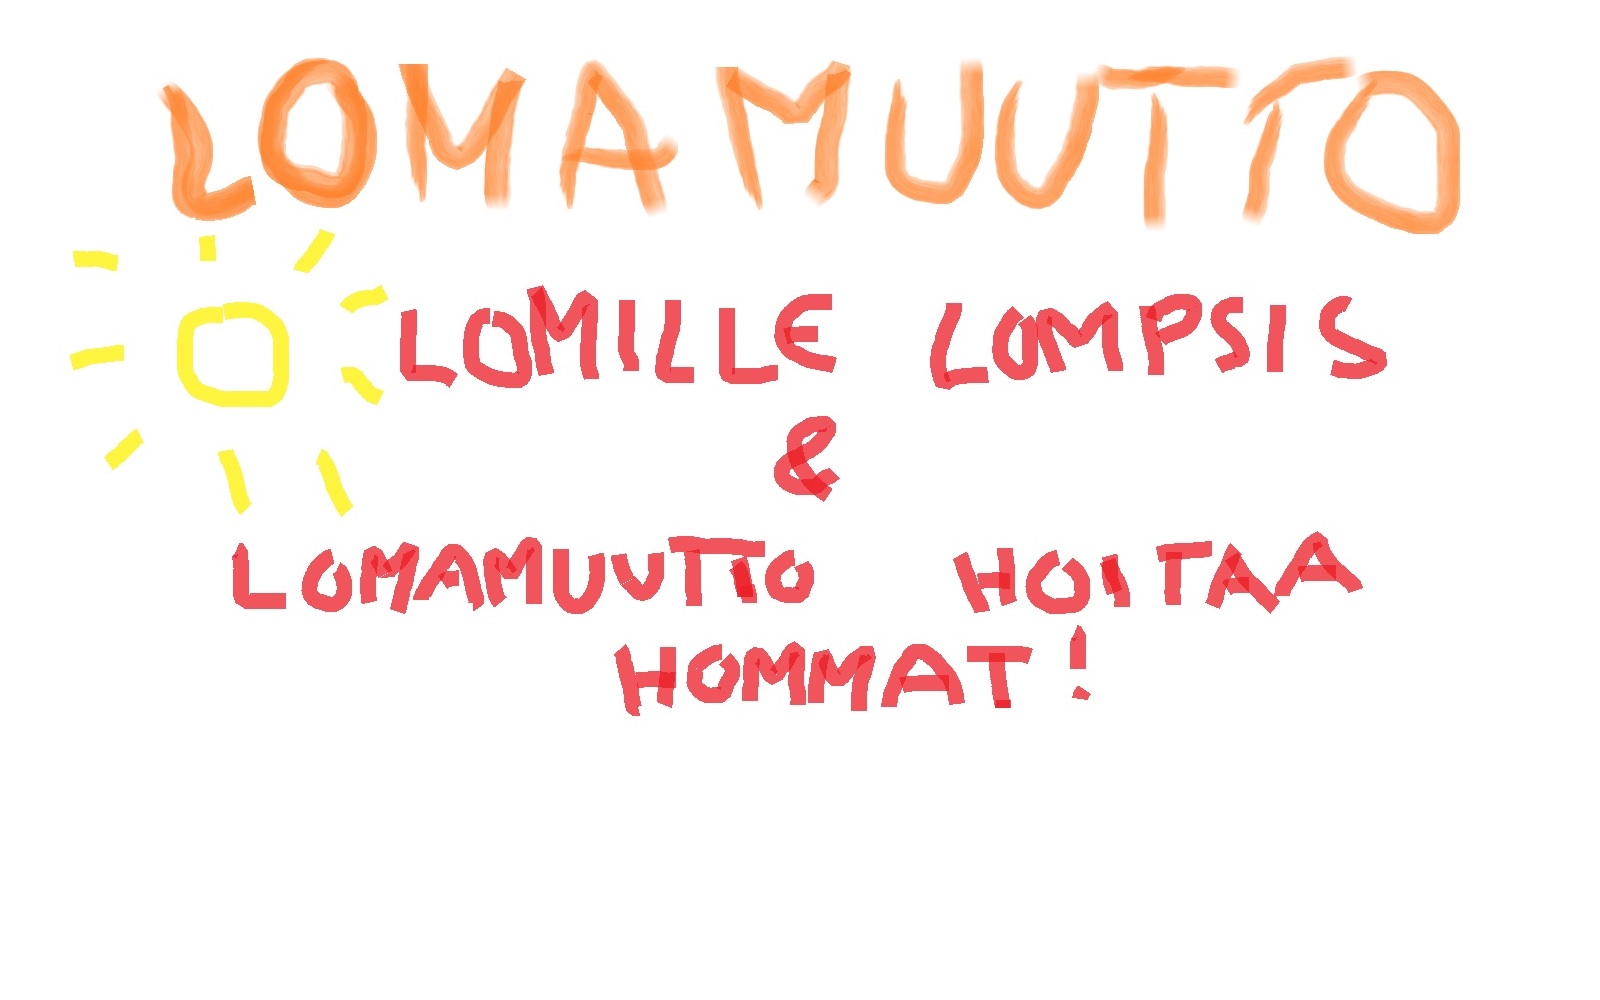 LOMAMUUTTO
LOMILLE LOMPSIS
&
LOMAMUUTTO HOITAA
HOMMAT!